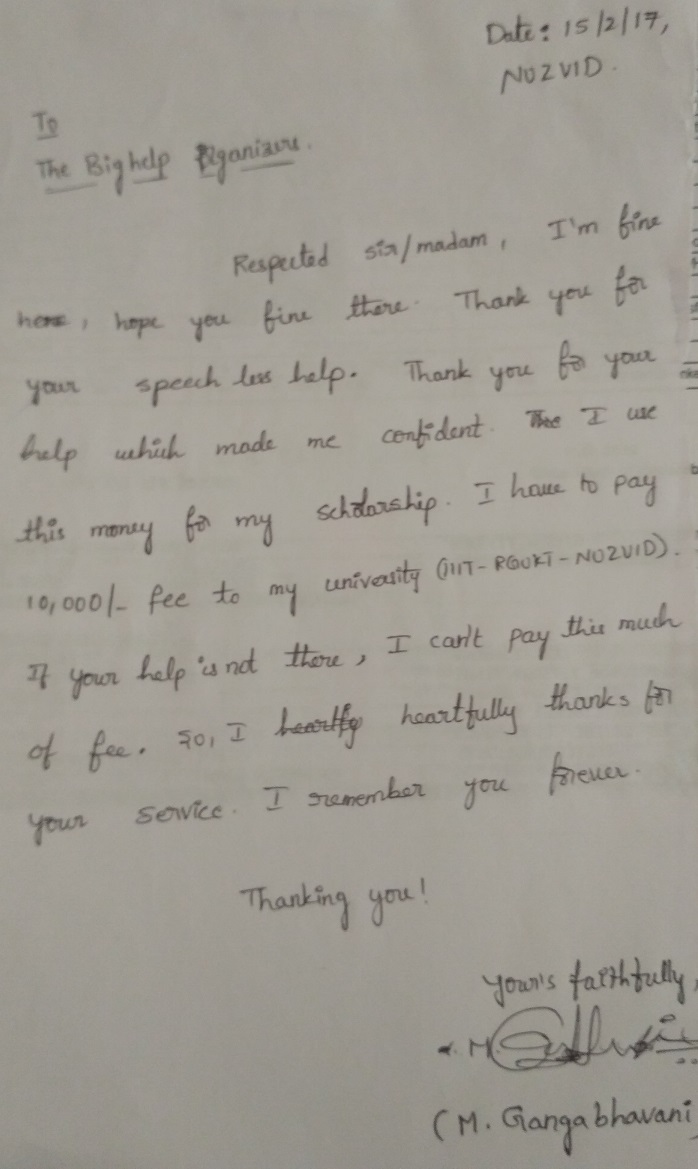 Date: 15/2/17,
NUZVID.
To
The Big help Organizers.
Respected sir/madam, I'm fine
here, hope you fine there. Thank you for
your speech less help. Thank you for your
help which made me confident. The I use
this money for my scholarship. I have to pay
10,000/- fee to my university (IIIT-RGUKT-NUZVID).
If your help is not there, I can't pay this much
of fee. So, I heartfy heartfully thanks for
your service. I remember you forever.
Thanking you!
your's faithfully,
M.
(M. Gangabhavani)